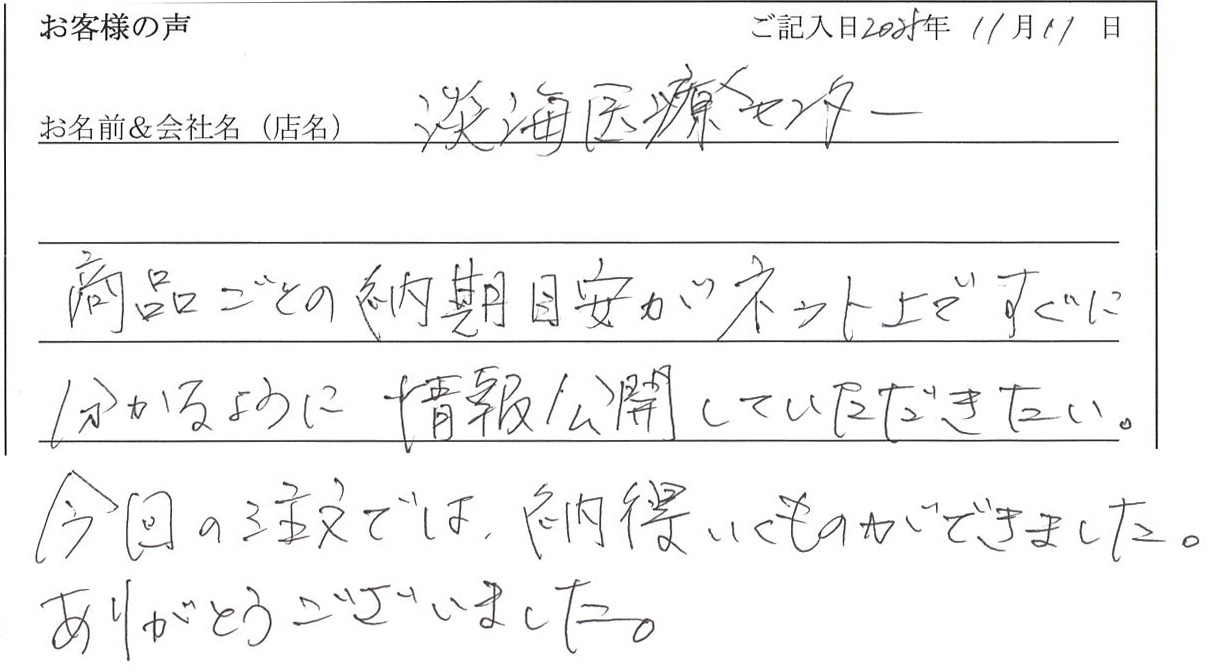 お客様の声 ご記入日2025年 11月11日
お名前&会社名（店名） 淡海医療センター
商品ごとの納期目安がネット上ですぐに
分かるように情報公開していただきたい。
今回の注文では、納得いくものができました。
ありがとうございました。